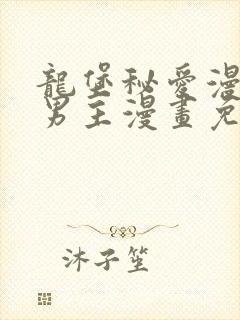 龍堡秘愛漫
男主漫畫免
沐子笙